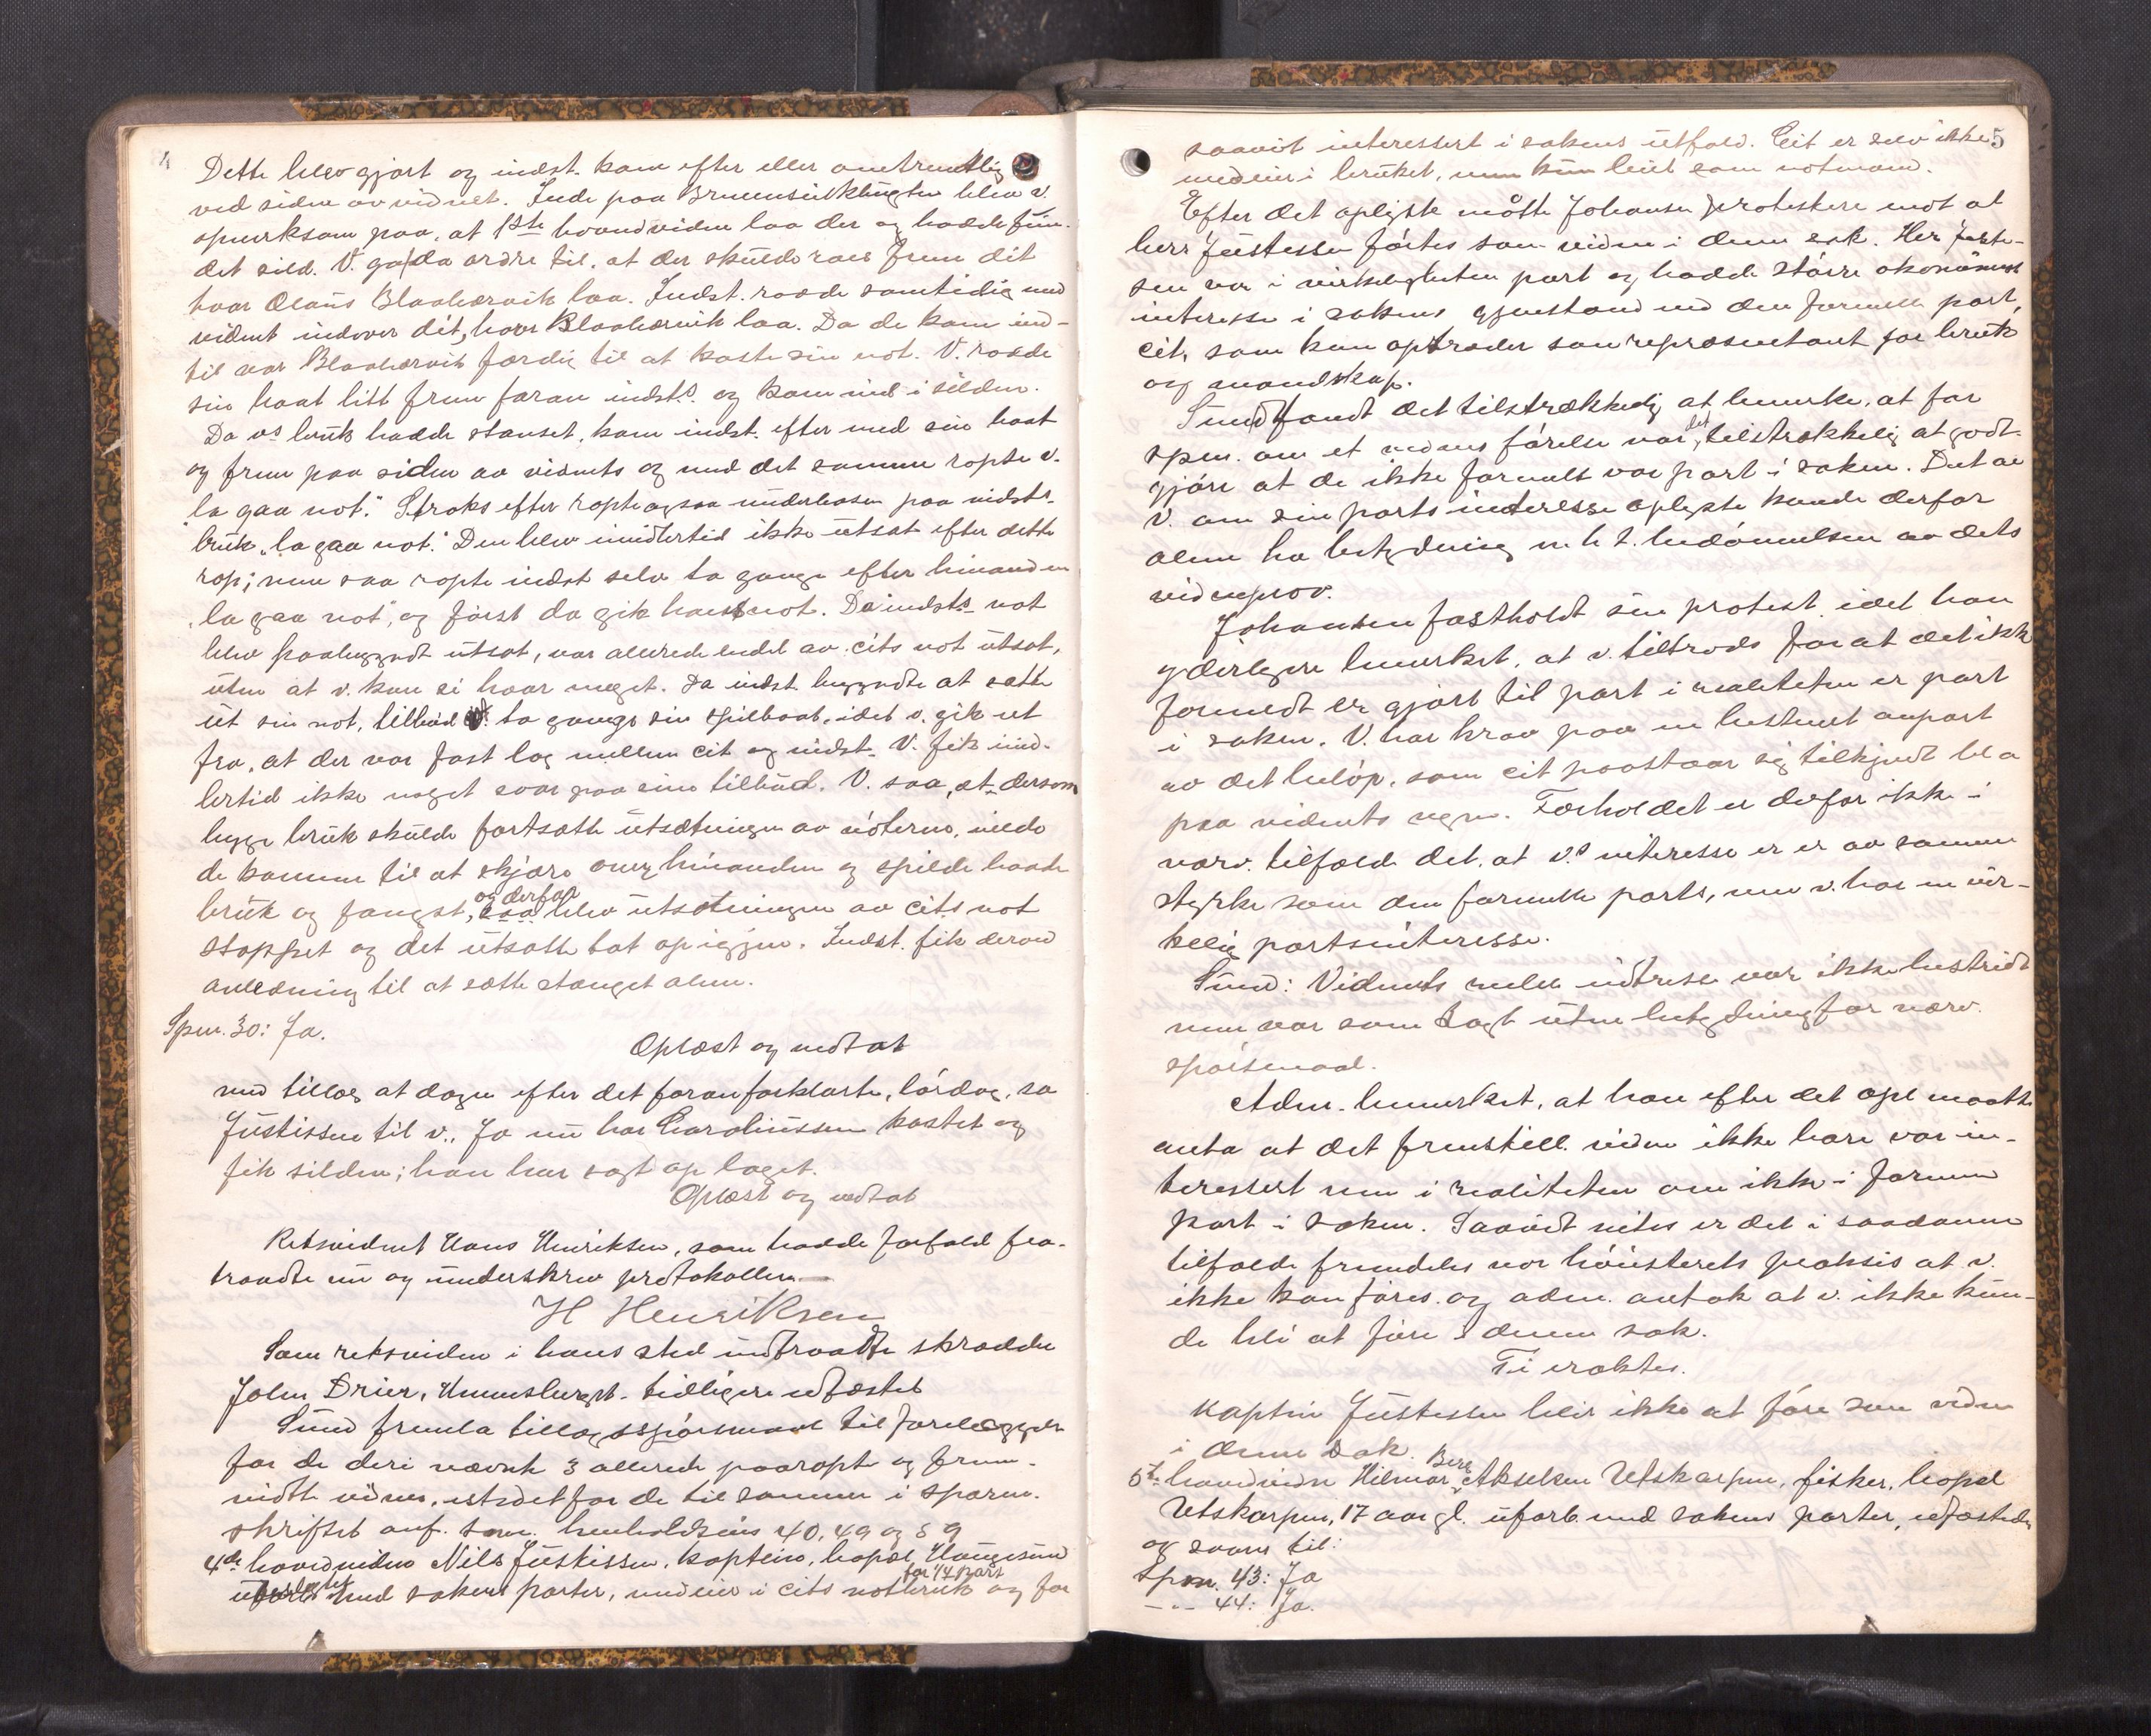 4
Dette blev gjort og indst. kom efter eller omtrentlig
ved siden av vidnet. Inde paa blev v.
opmerksom paa, at 1ste hovedviden laa der og hadde fun-
det sild. V. ga da ordre til, at der skulde roes frem dit
hvor Olaus Blaaværvik laa. Indst. rodde samtidig med
vidnet indover dit, hvor Blaaværvik laa. Da de kom ind-
til var Blaaværvik færdig til at kaste sin not. V. rodde
sin baat litt frem foran indsts. og kom ind i silden.
Da vs bruk hadde stanset, kom indst. efter med sin baat
og frem paa siden av vidnets og med det samme ropte v.
"la gaa not." Straks efter ropte ogsaa underbasen paa indsts.
bruk "la gaa not." Den blev imidlertid ikke utsat efter dette
rop; men saa ropte indst selv to gange efter hinanden
"la gaa not", og først da gik hans not. Da indsts. not
blev paabegyndt utsat, var allerede endel av cits not utsat,
uten at v. kan si hvor meget. Da indst. begyndte at sætte
ut sin not, tilbød v. to gange sin spilbaat, idet v. gik ut
fra, at der var fast lag mellem cit og indst. V. fik imid-
lertid ikke noget svar paa sine tilbud. V. saa, at dersom
begge bruk skulde fortsætte utsætningen av nøterne, vilde
de komme til at skjære over hinanden og spilde baade
bruk og fangst, og derfor blev utsætningen av cits not
stoppet og det utsatte tat op igjen. Indst. fik derved
anledning til at sætte stænget alene.
Spm. 30: Ja.
Oplæst og vedtat
med tillæg at dagen efter det foran forklarte, lørdag, sa
Justissen til v., Ja nu har Carolinssen kastet og
fik silden; han har sagt op laget.
Oplæst og vedtat
Retsvidnet Hans Henriksen, som hadde forfald fra-
traadte nu og underskrev protokollen.
H Henriksen
Som retsviden i hans sted indtraadte skrædder
John Drier, tidligere edfæstet
Sund fremla tillægsspørsmaal til forelæggelse
for de deri nævnte 3 allerede paaropte og frem-
mødte vidner, istedetfor de til samme i spørsm.
skriftet anf. spm. henholdsvis 40, 49 og 59
4de hovedviden Nils Justissen, kaptein, bopæl Haugesund
ubeslegtet med sakens parter, medeier i cits notbruk for 1/4 part og for
5
saavidt interessert i sakens utfald. Cit er selv ikke
medeier i bruket, men kun leiet som notmand.
Efter det oplyste måtte Johansen protestere mot at
herr Justessen førtes som viden i denne sak. Herr Juste-
sen var i virkeligheten part og hadde større økonomisk
interesse i sakens gjenstand end den formelle part,
cit, som kun optræder som repræsentant for bruk
og mandskap.
Sund fandt det tilstrækkelig at bemerke, at for
spm. om et vidnes førelse var det tilstrækkelig at godt-
gjøre at de ikke formelt var part i saken. Det av
v. om sin partsinteresse oplyste kunde derfor
alene ha betydning m.h.t. bedømmelsen av dets
vidneprov.
Johansen fastholdt sin protest idet han
yderligere bemerket, at v. tiltrods for at det ikke
formelt er gjort til part i realiteten er part
i saken. V. har krav paa en bestemt anpart
av det beløp, som cit paastaar sig tilkjendt bl a
paa vidnets vegne. Forholdet er derfor ikke i
nærv. tilfælde det, at v.s interesse er av samme
styrke som den formelle parts, men v. har en vir-
kelig partsinteresse.
Sund: Vidnets reelle interesse var ikke bestridt
men var som sagt uten betydning for nærv.
spørsmaal.
Adm. bemerket, at han efter det opl maatte
anta at det fremstill. viden ikke bare var in-
teressert men i realiteten om ikke i formen
part i saken. Saavidt vites er det i saadanne
tilfælde fremdeles vor høiesterets praksis at v.
ikke kan føres. og adm. antok at v. ikke kun-
de bli at føre i denne sak.
Ti eraktes.
Kaptein Justessen blir ikke at føre som viden
i denne sak.
5te hovedviden Hilmar Berg Akselsen Utskarpen, fisker, bopæl
Utskarpen, 17 aar gl. uforb. med sakens parter, edfæstedes
og svarer til:
Spm. 43: Ja
-"- 44: Ja.